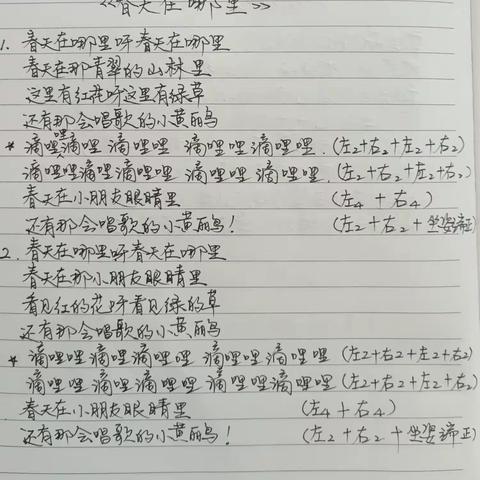 《春天在哪里》
1. 春天在哪里呀春天在哪里
春天在那青翠的山林里
这里有红花呀这里有绿草
还有那会唱歌的小黄鹂鸟
* 滴哩哩滴哩哩滴哩哩 滴哩哩滴哩哩.(左2+右2+左2+右2)
滴哩哩滴哩滴哩哩 滴哩哩滴哩哩.(左2+右2+左2+右2)
春天在小朋友眼睛里 (左4+右4)
还有那会唱歌的小黄鹂鸟! (左2+右2+坐姿端正)
2. 春天在哪里呀春天在哪里
春天在那小朋友眼睛里
看见红的花呀看见绿的草
还有那会唱歌的小黄鹂鸟
* 滴哩哩滴哩滴哩哩 滴哩哩滴哩哩 (左2+右2+左2+右2)
滴哩哩滴哩滴哩哩 滴哩哩滴哩哩 (左2+右2+左2+右2)
春天在小朋友眼睛里 (左4+右4)
还有那会唱歌的小黄鹂鸟! (左2+右2+坐姿端正)